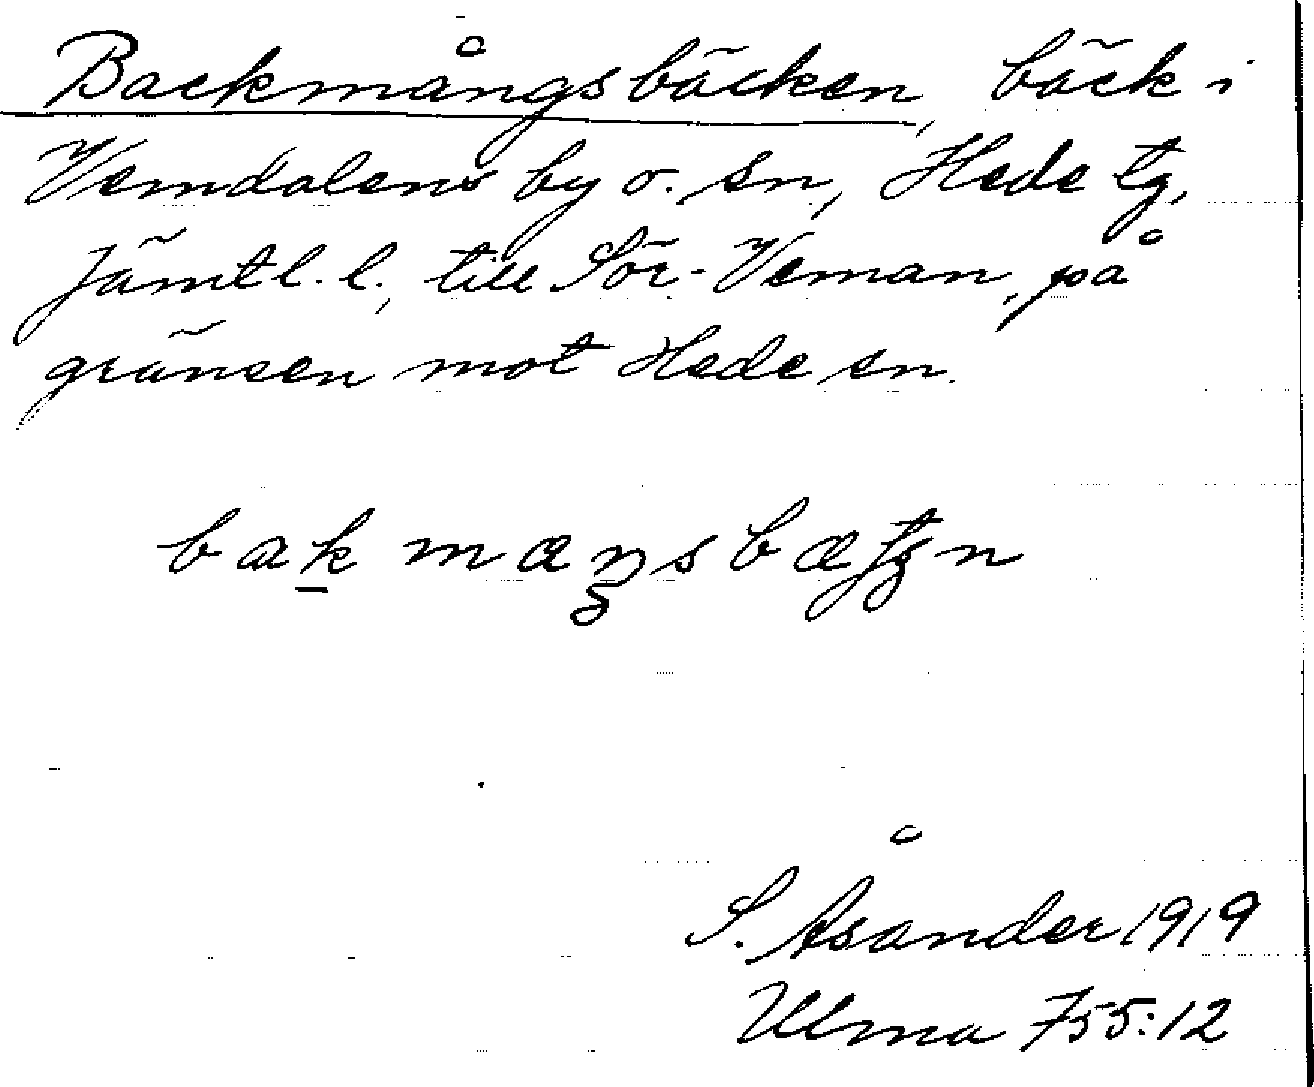 Backmångsbäcken, bäck i
Vemdalens by o. sn, Hede tg,
Jämtl. l., till Sör-Veman, på
gränsen mot Hede sn.
S. Åsander 1919
Ulma 755:12